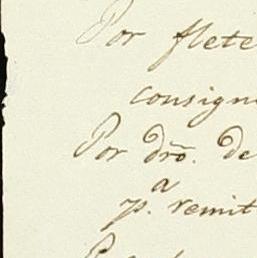 Por flete
consign
Por dro. de
pa. remit